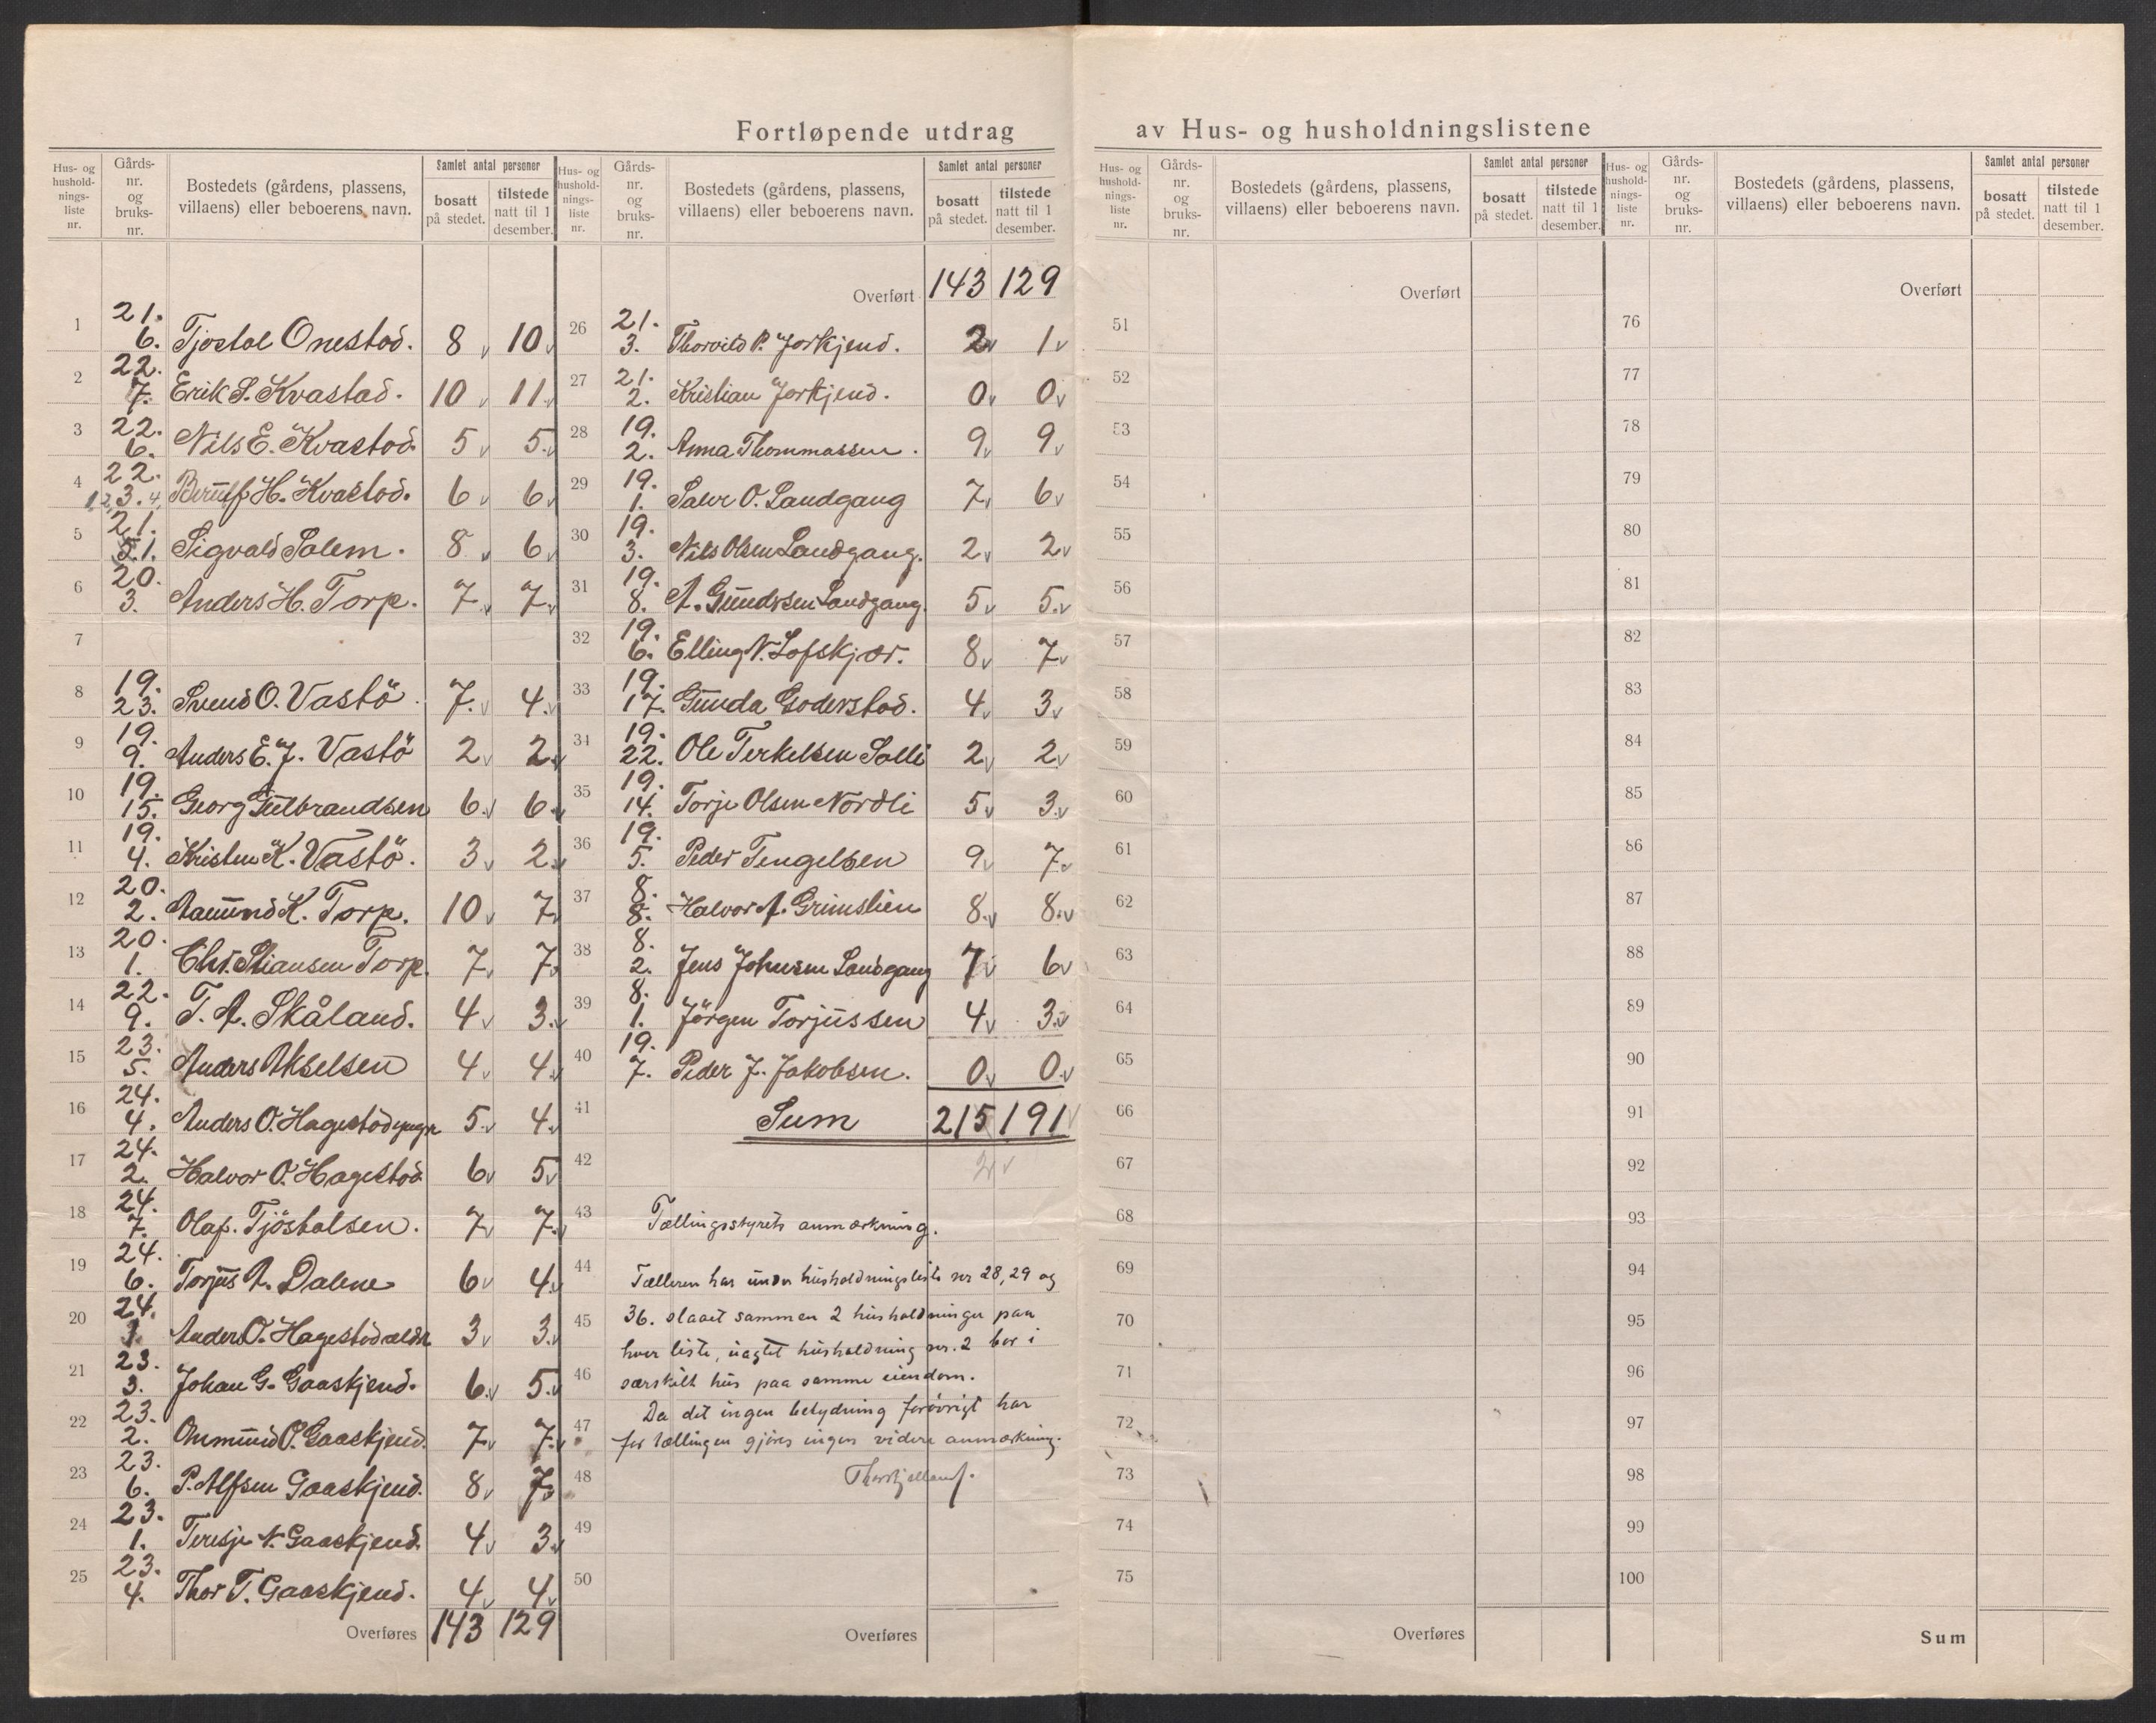 Fortløpende utdrag av Hus- og husholdningslistene
Hus- og hushold-nings-liste nr. | Gårds-nr. og bruks-nr. | Bostedets (gårdens, plassens, villaens) eller beboerens navn. | Samlet antal personer: bosatt på stedet. | tilstede natt til 1 desember.
1 | 21. 6. | Tjostol Onestad. | 8 | 10
2 | 22. 7. | Erik S. Kvastad. | 10 | 11
3 | 22. 6. | Nils E. Kvastad. | 5 | 5
4 | 22. 1,2,3.4, | Berulf H. Kvastad. | 6 | 6
5 | 21. 5.1. | Sigvald Solem. | 8 | 6
6 | 20. 3. | Anders H. Torp. | 7 | 7
7
8 | 19. 23. | Svend O. Vastö. | 7. | 4.
9 | 19. 9. | Anders E. J. Vastö | 2 | 2
10 | 19. 15. | Georg Gulbrandsen | 6 | 6
11 | 19. 4. | Kristen K. Vastö. | 3 | 2
12 | 20. 2. | Aamund K. Torp. | 10 | 7
13 | 20. 1. | Chr. Stiansen Torp. | 7 | 7
14 | 22. 9. | T. A. Skåland. | 4 | 3.
15 | 23. 5. | Anders Akselsen | 4 | 4
16 | 24. 4. | Anders O. Hagestad yngr | 5 | 4
17 | 24. 2. | Halvor O. Hagestad | 6 | 5
18 | 24. 7. | Olaf. Tjöstolsen. | 7 | 7
19 | 24. 6. | Torjus A. Dalene | 6 | 4
20 | 24. | Anders O. Hagestad ældr | 3 | 3
21 | 23. 3. | Johan G. Gaaskjend. | 6 | 5
22 | 23. 2. | Omund O. Gaaskjend. | 7 | 7
23 | 23. 6. | P. Alfsen Gaaskjend. | 8 | 7
24 | 23. 1. | Teresje N. Gaaskjend. | 4 | 3
25 | 23. 4. | Thor T. Gaaskjend. | 4 | 4
Overføres 143 129
Hus- og hushold-nings-liste nr. | Gårds-nr. og bruks-nr. | Bostedets (gårdens, plassens, villaens) eller beboerens navn. | Samlet antal personer: bosatt på stedet. | tilstede natt til 1 desember.
Overført 143 129
26 | 21. 3. | Thorvild P. Jorkjend. | 2 | 1
27 | 21. 2. | Kristian Jorkjend. | 0 | 0
28 | 19. 2. | Anna Thommassen. | 9 | 9
29 | 19. 1. | Salve O. Landgang | 7 | 6
30 | 19. 3. | Nils Olsen Landgang. | 2 | 2
31 | 19. 8. | A. Gundersen Landgang. | 5 | 5
32 | 19. 6. | Elling N. Lofskjær. | 8 | 7
33 | 19. 17. | Gunda Goderstad. | 4 | 3
34 | 19. 22. | Ole Terkelsen Solli | 2 | 2
35 | 19. 14. | Torje Olsen Nordli | 5 | 3
36 | 19. 5. | Peder Tengelsen | 9 | 7
37 | 8. 8. | Halvor A. Grimslien | 8 | 8
38 | 8. 2. | Jens Johnsen Landgang | 7 | 6
39 | 8. 1. | Jörgen Torjussen | 4 | 3
40 | 19. 7. | Peder J. Jakobsen. | 0 | 0
41 Sum 215 191
42 2
43 Tællingsstyrets anmærkning.
44 Tælleren har under husholdningsliste nr 28, 29 og
45 36. slaaet sammen 2 husholdninger paa
hver liste, uagtet husholdning nr. 2 bor i
46 særskilt hus paa samme eiendom.
Da det ingen betydning forövrigt har
47 for tællingen gjöres ingen videre anmærkning.
48
49
50
Overføres
Hus- og hushold-nings-liste nr. | Gårds-nr. og bruks-nr. | Bostedets (gårdens, plassens, villaens) eller beboerens navn. | Samlet antal personer: bosatt på stedet. | tilstede natt til 1 desember.
Overført
51
52
53
54
55
56
57
58
59
60
61
62
63
64
65
66
67
68
69
70
71
72
73
74
75
Overføres
Hus- og hushold-nings-liste nr. | Gårds-nr. og bruks-nr. | Bostedets (gårdens, plassens, villaens) eller beboerens navn. | Samlet antal personer: bosatt på stedet. | tilstede natt til 1 desember.
Overført
76
77
78
79
80
81
82
83
84
85
86
87
88
89
90
91
92
93
94
95
96
97
98
99
100
Sum